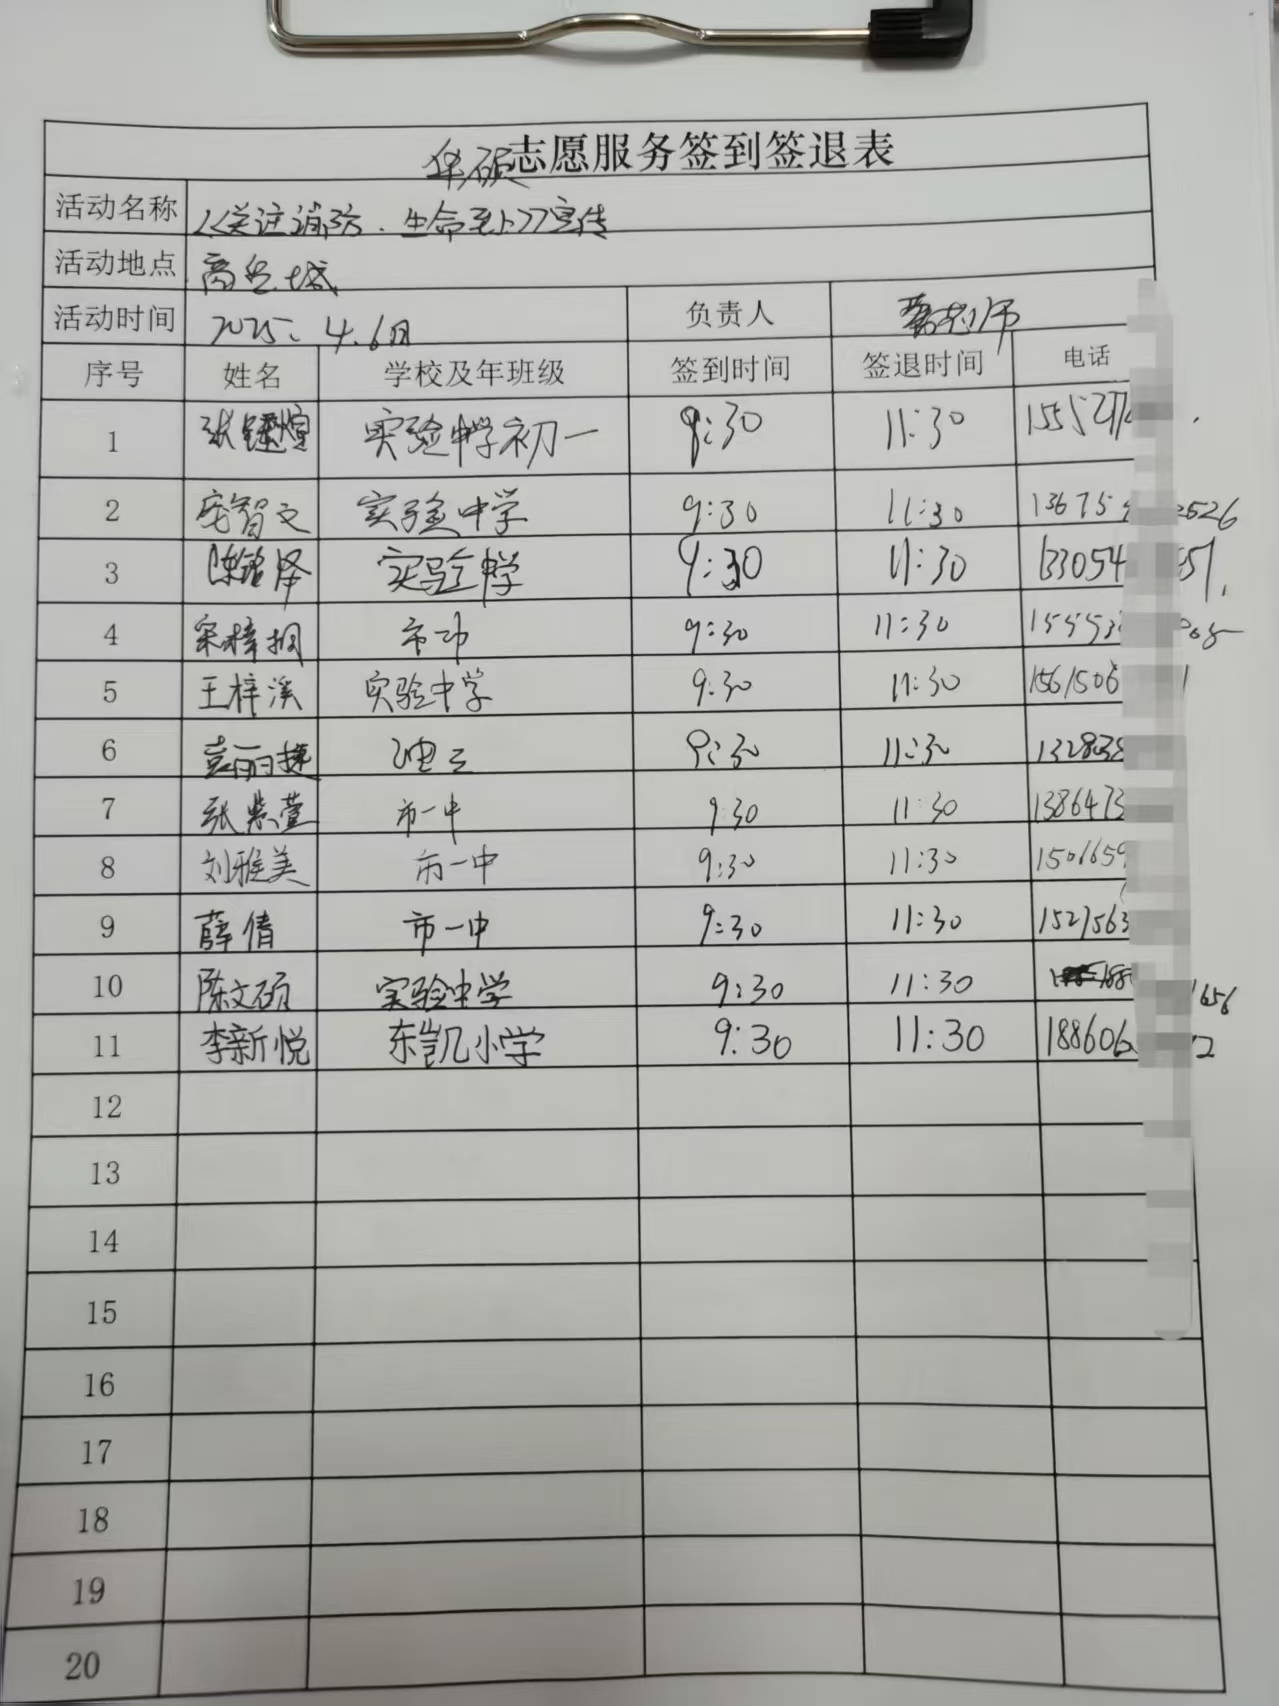 华硕志愿服务签到签退表
活动名称 《关注消防.生命至上》宣传
活动地点 商业城
活动时间 2025.4.6日 负责人 老师
序号 姓名 学校及年班级 签到时间 签退时间 电话
1 张煊 实验中学初一 9:30 11:30 15527
2 庞智文 实验中学 9:30 11:30 13675 2526
3 陈铭泽 实验中学 9:30 11:30 133054 51
4 宋梓桐 市中 9:30 11:30 15553
5 王梓溪 实验中学 9:30 11:30 1561506
6 袁丽捷 9:30 11:30 132803
7 张紫萱 市一中 9:30 11:30 1386473
8 刘雅美 市一中 9:30 11:30 1501659
9 薛倩 市一中 9:30 11:30 1527563
10 陈文硕 实验中学 9:30 11:30 188 1656
11 李新悦 东凯小学 9:30 11:30 188606 2
12
13
14
15
16
17
18
19
20